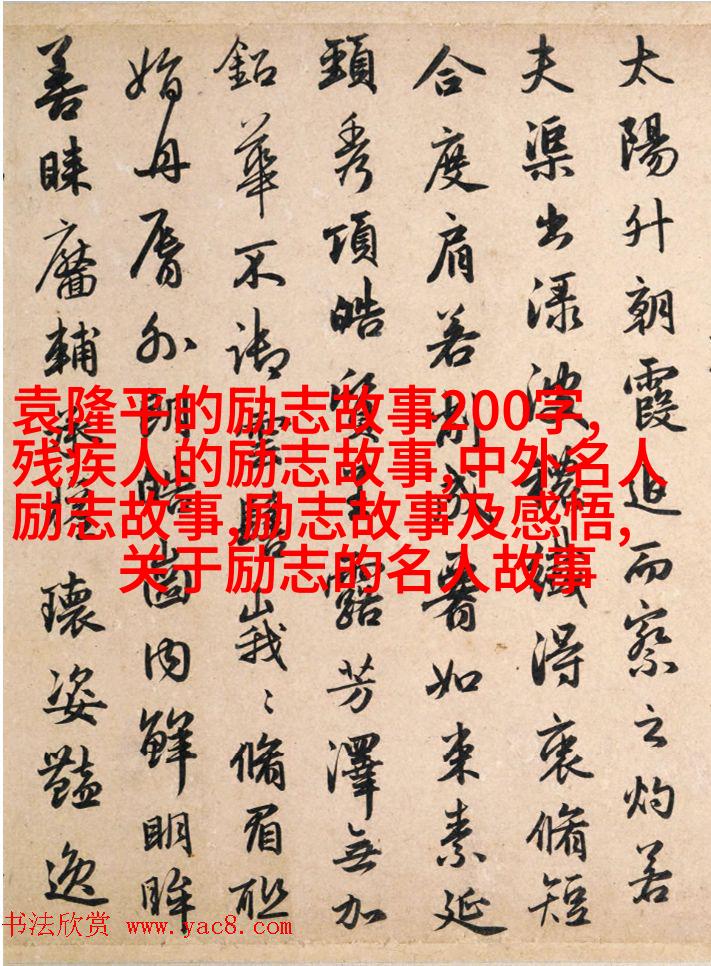 太陽升朝霞迫而察之灼若
夫渠出渌波穠纖得衷脩短
合度肩若削成署如束素延
頸秀項皓質呈露芳澤無加
鉛華不御雲髻峩〻脩眉联
娟丹脣外朗皓齒内鮮明眸
善睐靨輔承權瓌姿豔逸
袁隆平的励志故事200字,
残疾人的励志故事,中外名人
励志故事,励志故事及感悟,
关于励志的名人故事
书法欣赏 www.yac8.com